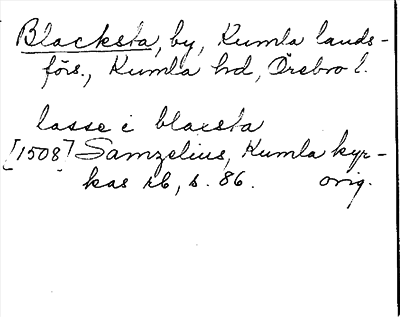 Blacksta, by, Kumla lands-
förs., Kumla hd, Örebro l.
lasse i blaxsta
[1508] Samzelius, Kumla kyr-
kas rb, s. 86. orig.